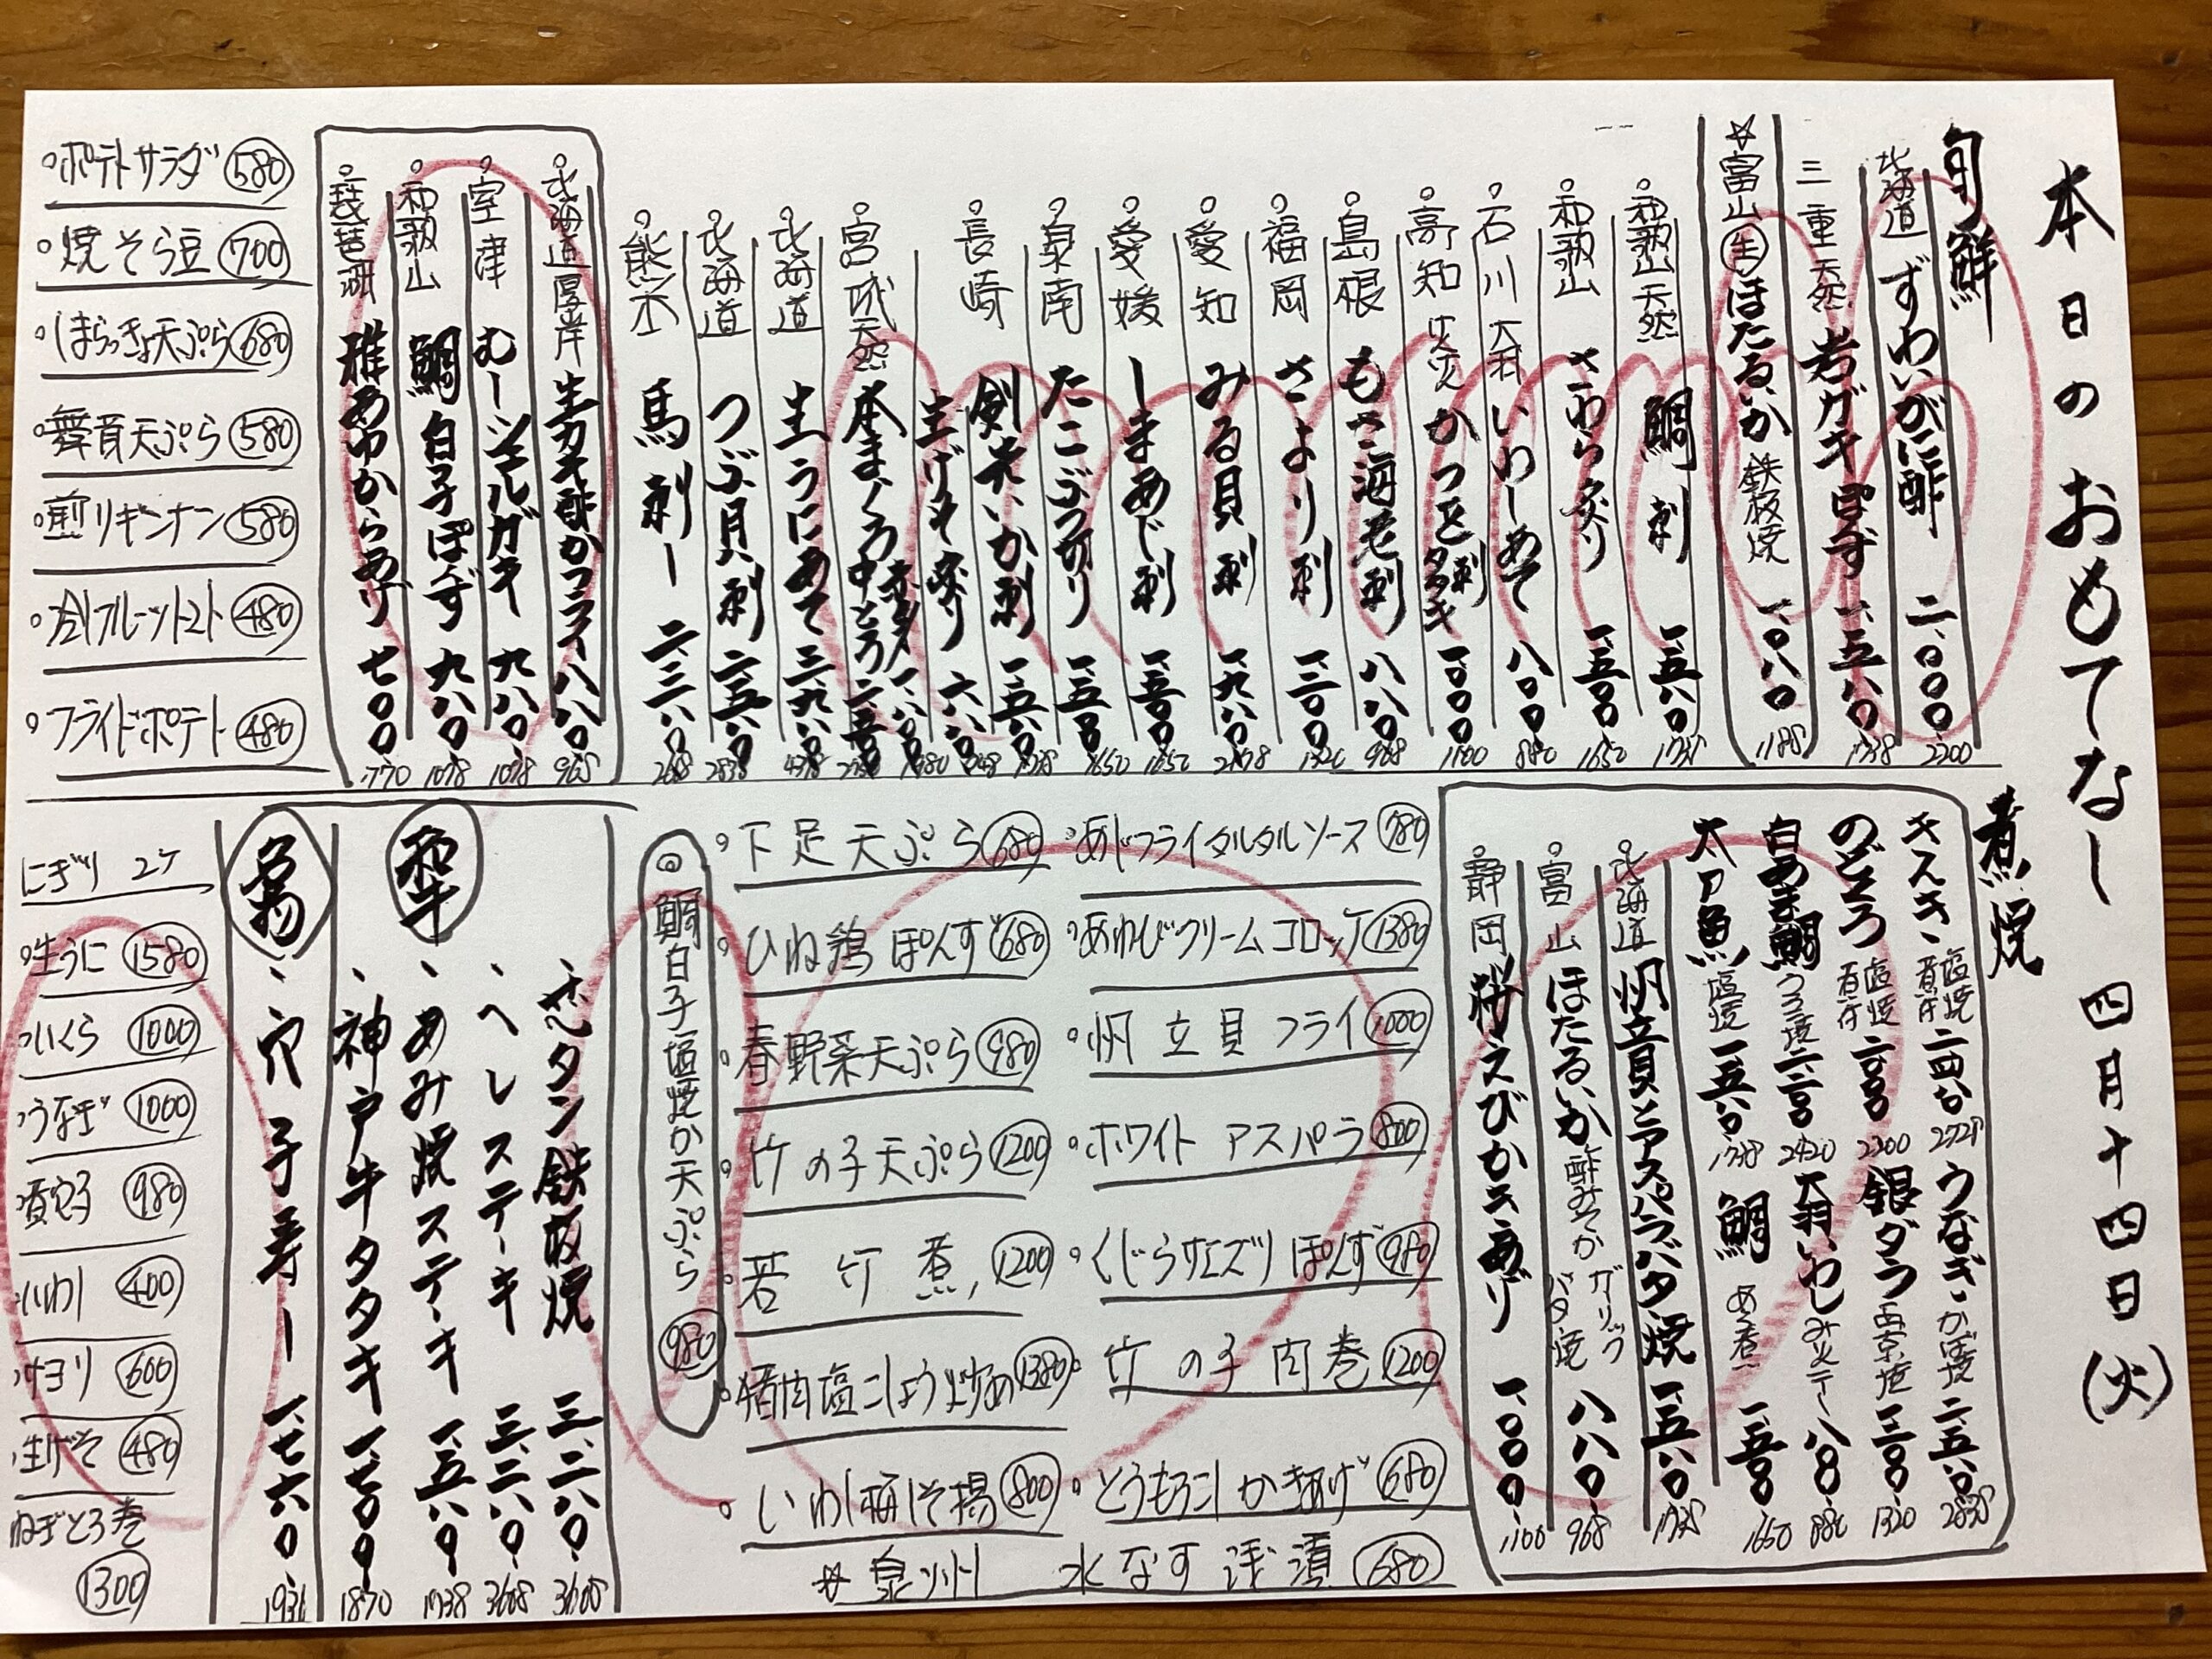 本日のおもてなし 四月十四日(火)
旬鮮
北海道 ずわいがに酢 二、000 2200
三重 天然 岩ガキ ぽんず 一、五八0 1738
☆富山 生 ほたるいか 鉄板焼 一、0八0 1188
和歌山 天然 鯛刺 一、五八0 1738
和歌山 さわら炙り 一、五00 1650
石川 大村 いわしあて 八00 880
高知 かつを 刺 タタキ 一、000 1100
島根 もさ海老刺 八八0 968
福岡 さより刺
愛知 みる貝刺 一、九八0 2178
愛媛 しまあじ刺 一、五00 1650
泉南 たこぶつ切り 一、五00 1650
長崎 剣先いか刺 一、五八0 1738
生げそ炙り 六八0 748
宮城 天然 本まぐろ 中とろ 二、五00
北海道 生うにあて 三、九八0 4378
北海道 つぶ貝刺 二、五八0 2838
熊本 馬刺し 二、三八0
北海道厚岸 生カキ酢かフライ 八八0 968
室津 むしシェルガキ 九八0 1078
和歌山 鯛白子ぽんず 九八0 1078
琵琶湖 稚あゆからあげ 七00 770
ポテトサラダ 580
焼そら豆 700
しまらっきょ天ぷら 680
舞茸天ぷら 580
煎りギンナン 580
冷しフルーツトマト 480
フライドポテト 480
煮焼
キスキ 塩焼 煮付
のどぐろ 塩焼 煮付 二、000 2200
白あま鯛 うろこ焼 二、二00 2420
太刀魚 塩焼 一、五八0 1738
うなぎ かば焼 二、五八0 2838
銀ダラ 西京焼 1320
大羽いわし 八00 880
鯛 あら煮 一、五00 1650
北海道 帆立貝とアスパラバタ焼 一、五八0 1738
富山 ほたるいか 酢みそか ガーリックバタ焼 八八0 968
静岡 桜えびかきあげ 一、000 1100
あじフライタルタルソース 780
あわびクリームコロッケ 1380
帆立貝フライ 1000
ホワイトアスパラ 800
くじらサエズリぽんず 980
竹の子肉巻 1200
とうもろこしかきあげ 680
下足天ぷら 680
ひね鶏ぽんず 680
春野菜天ぷら 980
竹の子天ぷら 1200
若竹煮 1200
猪肉塩こしょう炒め 1380
いわし梅しそ揚 800
☆泉州 水なす浅漬 680
◎鯛白子塩焼か天ぷら 980
和牛
タン鉄板焼 三、二八0 3608
ヘレステーキ 三、二八0 3608
あみ焼ステーキ 一、五八0 1738
神戸牛タタキ 一、七00 1870
名物
穴子寿し 一、七六0 1936
にぎり 2ケ
生うに 1580
いくら 1000
うなぎ 1000
煮穴子 980
いわし 400
サヨリ 600
生げそ 480
ねぎとろ巻 1300